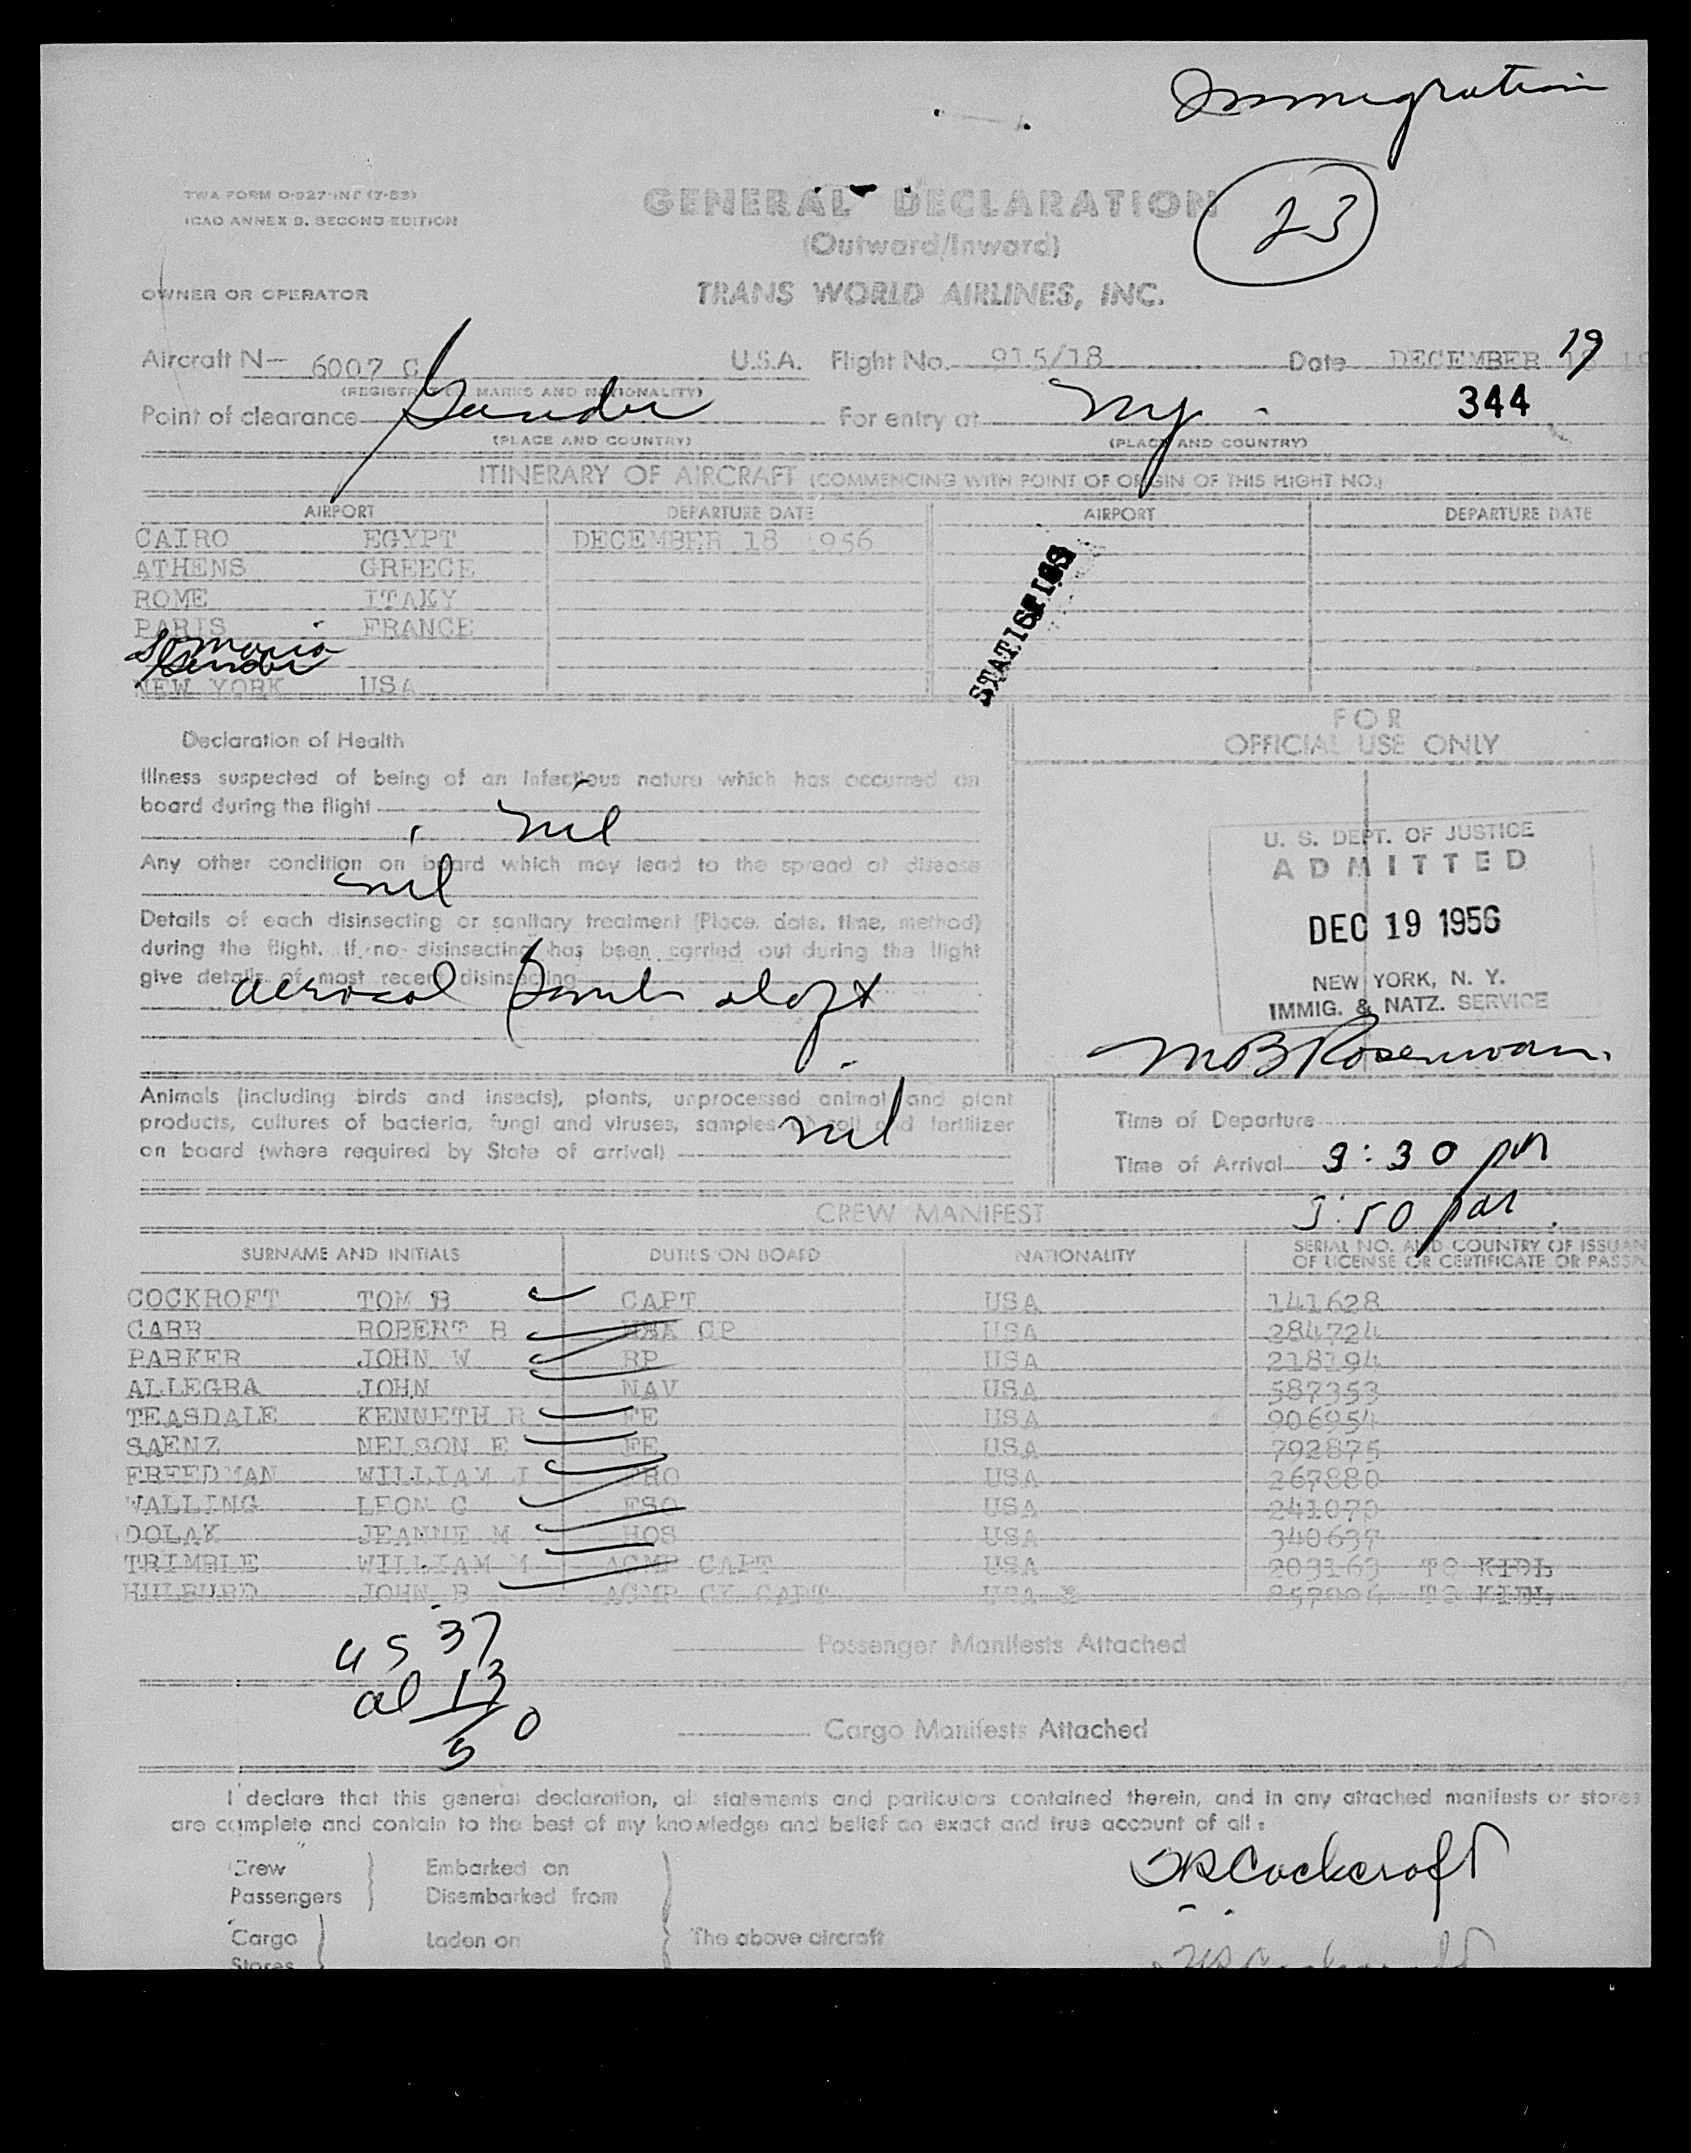 Immigration
23
TWA FORM O-927-INT (7-53)
ICAO ANNEX 9, SECOND EDITION
GENERAL DECLARATION
(Outward/Inward)
OWNER OR OPERATOR
TRANS WORLD AIRLINES, INC.
Aircraft N- 6007 C U.S.A. Flight No. 915/18 Date DECEMBER 19
(REGISTRATION MARKS AND NATIONALITY)
344
Point of clearance Gander For entry at NY
(PLACE AND COUNTRY) (PLACE AND COUNTRY)
ITINERARY OF AIRCRAFT (COMMENCING WITH POINT OF ORIGIN OF THIS FLIGHT NO.)
AIRPORT DEPARTURE DATE AIRPORT DEPARTURE DATE
CAIRO EGYPT DECEMBER 18 1956
ATHENS GREECE
ROME ITAKY
PARIS FRANCE
Maria
Gander
NEW YORK USA
STATISTICS
Declaration of Health
FOR
OFFICIAL USE ONLY
Illness suspected of being of an infectious nature which has occurred on
board during the flight nil
Any other condition on board which may lead to the spread of disease
nil
Details of each disinsecting or sanitary treatment (Place, date, time, method)
during the flight. If no disinsecting has been carried out during the flight
give details of most recent disinsecting
aerosol bomb aloft
U. S. DEPT. OF JUSTICE
ADMITTED
DEC 19 1956
NEW YORK, N. Y.
IMMIG. & NATZ. SERVICE
Animals (including birds and insects), plants, unprocessed animal and plant
products, cultures of bacteria, fungi and viruses, samples of soil and fertilizer
on board (where required by State of arrival) nil
Time of Departure
Time of Arrival 3:30 pm
5:50 pm
CREW MANIFEST
SURNAME AND INITIALS DUTIES ON BOARD NATIONALITY SERIAL NO. AND COUNTRY OF ISSUAN
OF LICENSE OR CERTIFICATE OR PASSP
COCKROFT TOM B CAPT USA 141628
CARR ROBERT R CP USA 284724
PARKER JOHN W RP USA 218194
ALLEGRA JOHN NAV USA 587353
TEASDALE KENNETH H FE USA 906954
SAENZ NELSON E FE USA 792875
FREEDMAN WILLIAM I PRO USA 267880
WALLING LEON C FSO USA 241073
DOLAK JEANNE M HOS USA 340637
TRIMBLE WILLIAM M ACMP CAPT USA 203163 TO KIDL
HULBURD JOHN B ACMP CK CAPT USA TO KIDL
US 37
al 13
50
Passenger Manifests Attached
Cargo Manifests Attached
I declare that this general declaration, all statements and particulars contained therein, and in any attached manifests or stores
are complete and contain to the best of my knowledge and belief an exact and true account of all:
Crew Embarked on
Passengers Disembarked from
TB Cockcroft
Cargo Laden on The above aircraft
Stores